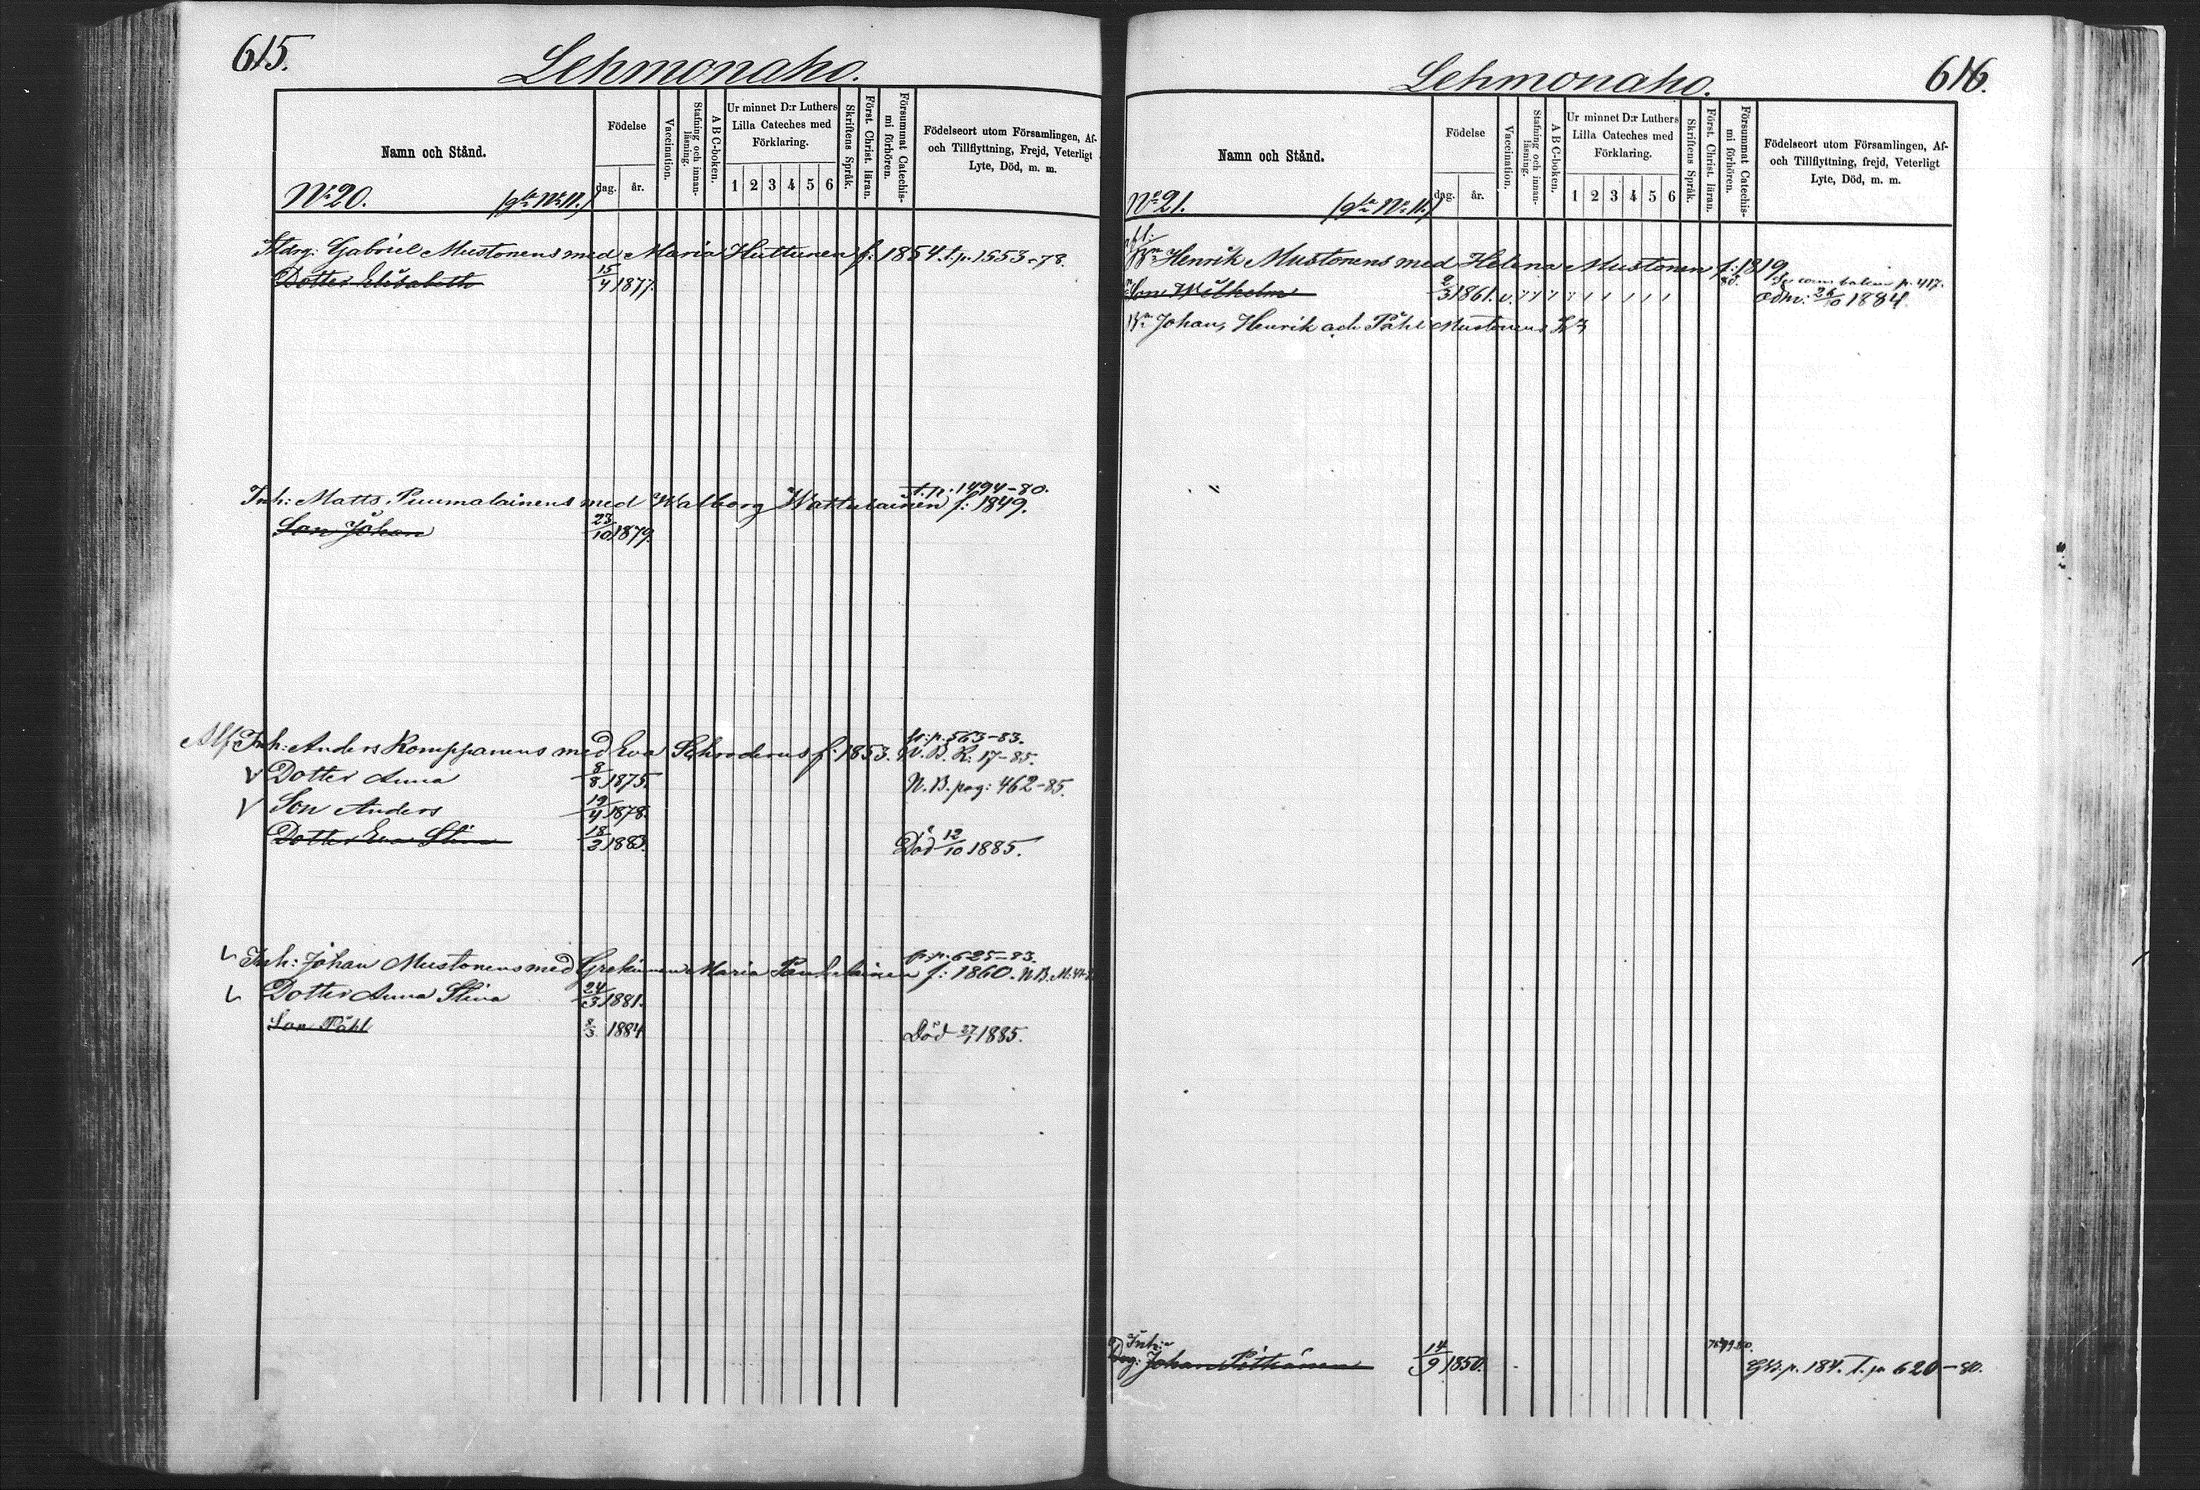 615.
Lehmonaho.
Namn och Stånd.
Födelse
dag. år.
Vaccination.
Stafning och innanläsning.
A B C-boken.
Ur minnet D:r Luthers
Lilla Cateches med
Förklaring.
1 2 3 4 5 6
Skriftens Språk.
Först. Christ. läran.
Försummat Catechismi förhören.
Födelseort utom Församlingen, Af-
och Tillflyttning, Frejd, Veterligt
Lyte, Död, m. m.
No 20. (gla No 11.)
Gabriel Mustonens med Maria Huttunen f: 1854. t.p. 1553-78.
Dotter Elisabeth 15/4 1877.
t.p. 1494-80.
Inh: Matts Puumalainens med Walborg Wattulainen f: 1849.
Son Johan 23/10 1879.
fr. p. 563-83.
Inh: Anders Romppanens med Eva Schroderus f: 1853. N.B. R: 17-85.
V Dotter Anna 8/8 1875. N.B. pag: 462-85.
V Son Anders 19/4 1878.
Dotter Eva Stina 18/3 1883. Död 12/10 1885.
fr. p. 625-83.
Inh: Johan Mustonens med Grekinnan Maria f: 1860. N.B.
Dotter Anna Stina 24/3 1881.
Son Påhl 8/3 1884 Död 27/1 1885.
616.
Lehmonaho.
Namn och Stånd.
Födelse
dag. år.
Vaccination.
Stafning och innanläsning.
A B C-boken.
Ur minnet D:r Luthers
Lilla Cateches med
Förklaring.
1 2 3 4 5 6
Skriftens Språk.
Först. Christ. läran.
Försummat Catechismi förhören.
Födelseort utom Församlingen, Af-
och Tillflyttning, frejd, Veterligt
Lyte, Död, m. m.
No 21. (gla No 11.)
Henrik Mustonens med Helena Mustonen f: 1819.
80. p. 417.
Son Wilhelm 2/3 1861. v. odm: 26/10 1884.
Johan, Henrik och Påhl Mustonens
Inh:
Drg: Johan Pitkänen 14/9 1850. p. 184. T. p. 620-80.